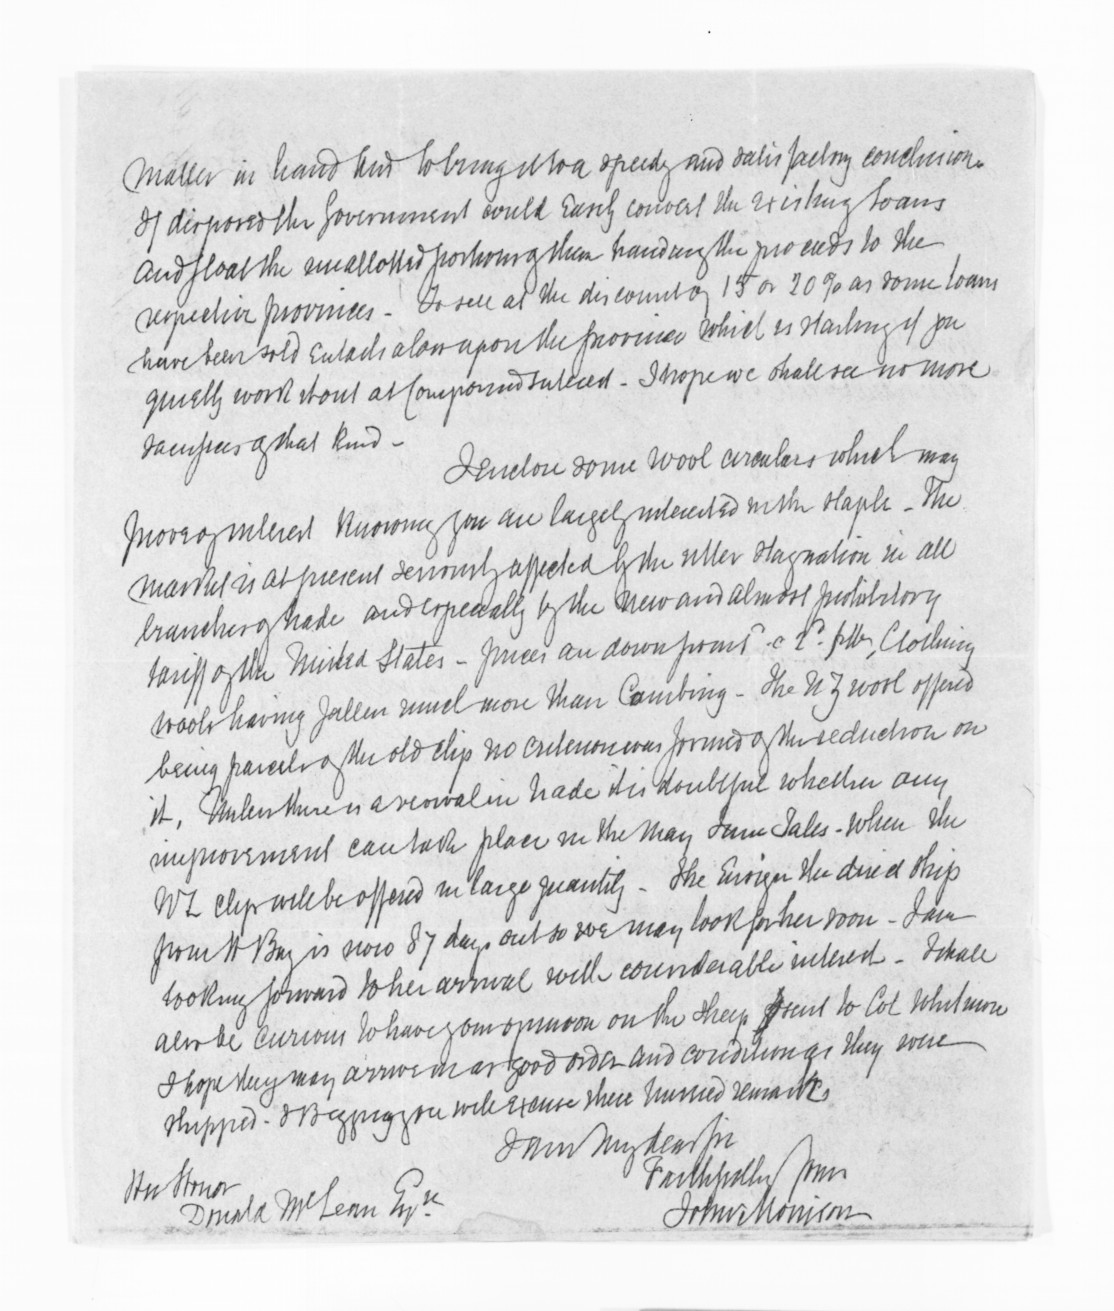 matter in hand and to bring it to a speedy and satisfactory conclusion.
If disposed the Government could easily convert the existing Loans
and float the unallotted portions of them handing the proceeds to the
respective provinces - To sell at the discount of 15 or 20% as some Loans
have been sold entails a loss upon the province which is startling if you
quietly work it out at Compound Interest - I hope we shall see no more
sacrifices of that kind -
I enclose some wool circulars which may
prove of interest knowing you are largely interested in the staple - The
market is at present seriously affected by the utter stagnation in all
branches of trade and especially by the new and almost prohibitory
tariff of the United States - prices are down from 2d. p lb, Clothing
wools having fallen much more than Combing - The NZ wool offered
being parcels of the old clip no criterion was formed of the reduction on
it, Unless there is a revival in trade it is doubtful whether any
improvement can take place in the May June Sales - when the
NZ clip will be offered in large quantity - The Ensign the direct ship
from H Bay is now 87 days out so we may look for her soon - I am
looking forward to her arrival with considerable interest - I shall
also be curious to have your opinion on the sheep sent to Col Whitmore
I hope they may arrive in as good order and condition as they were
shipped - & Begging you will excuse these hurried remarks
I am My dear Sir
Faithfully Yours
John Morrison
His Honor
Donald McLean Esqre